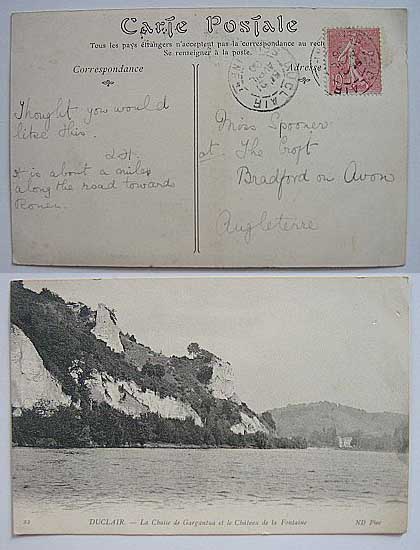 Carte Postale
Tous les pays étrangers n'acceptent pas la correspondance au recto
Se renseigner à la poste.
Correspondance
Adresse
DUCLAIR
Thought you would
like this.
It is about a mile
along the road towards
Rouen.
Miss Spooner
at The Croft
Bradford on Avon
Angleterre
DUCLAIR. — La Chaise de Gargantua et le Château de la Fontaine
ND Phot